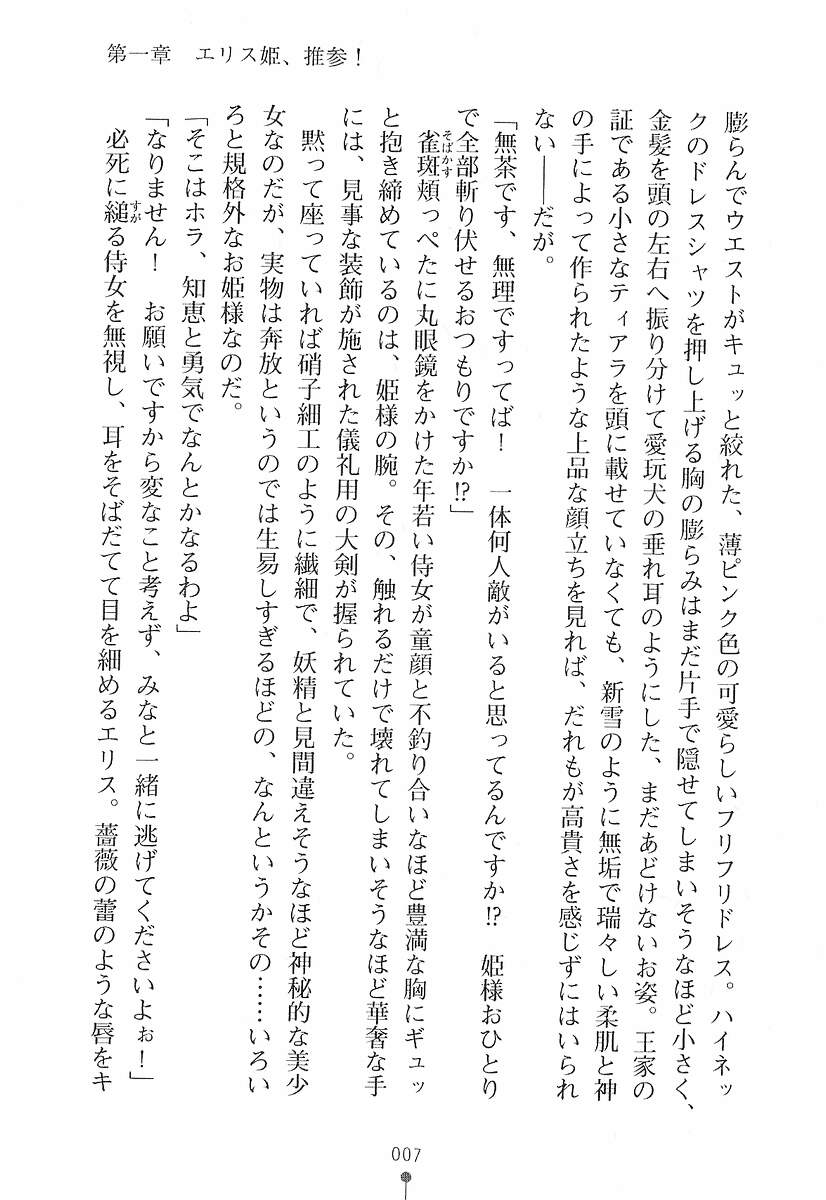 第一章　エリス姫、推参！
膨らんでウエストがキュッと絞れた、薄ピンク色の可愛らしいフリフリドレス。ハイネッ
クのドレスシャツを押し上げる胸の膨らみはまだ片手で隠せてしまいそうなほど小さく、
金髪を頭の左右へ振り分けて愛玩犬の垂れ耳のようにした、まだあどけないお姿。王家の
証である小さなティアラを頭に載せていなくても、新雪のように無垢で瑞々しい柔肌と神
の手によって作られたような上品な顔立ちを見れば、だれもが高貴さを感じずにはいられ
ない――だが。
「無茶です、無理ですってば！　一体何人敵がいると思ってるんですか!?　姫様おひとり
で全部斬り伏せるおつもりですか!?」
　雀斑頬っぺたに丸眼鏡をかけた年若い侍女が童顔と不釣り合いなほど豊満な胸にギュッ
と抱き締めているのは、姫様の腕。その、触れるだけで壊れてしまいそうなほど華奢な手
には、見事な装飾が施された儀礼用の大剣が握られていた。
　黙って座っていれば硝子細工のように繊細で、妖精と見間違えそうなほど神秘的な美少
女なのだが、実物は奔放というのでは生易しすぎるほどの、なんというかその……いろい
ろと規格外なお姫様なのだ。
「そこはホラ、知恵と勇気でなんとかなるわよ」
「なりません！　お願いですから変なこと考えず、みなと一緒に逃げてくださいよぉ！」
　必死に縋る侍女を無視し、耳をそばだてて目を細めるエリス。薔薇の蕾のような唇をキ
そばかす
すが
007